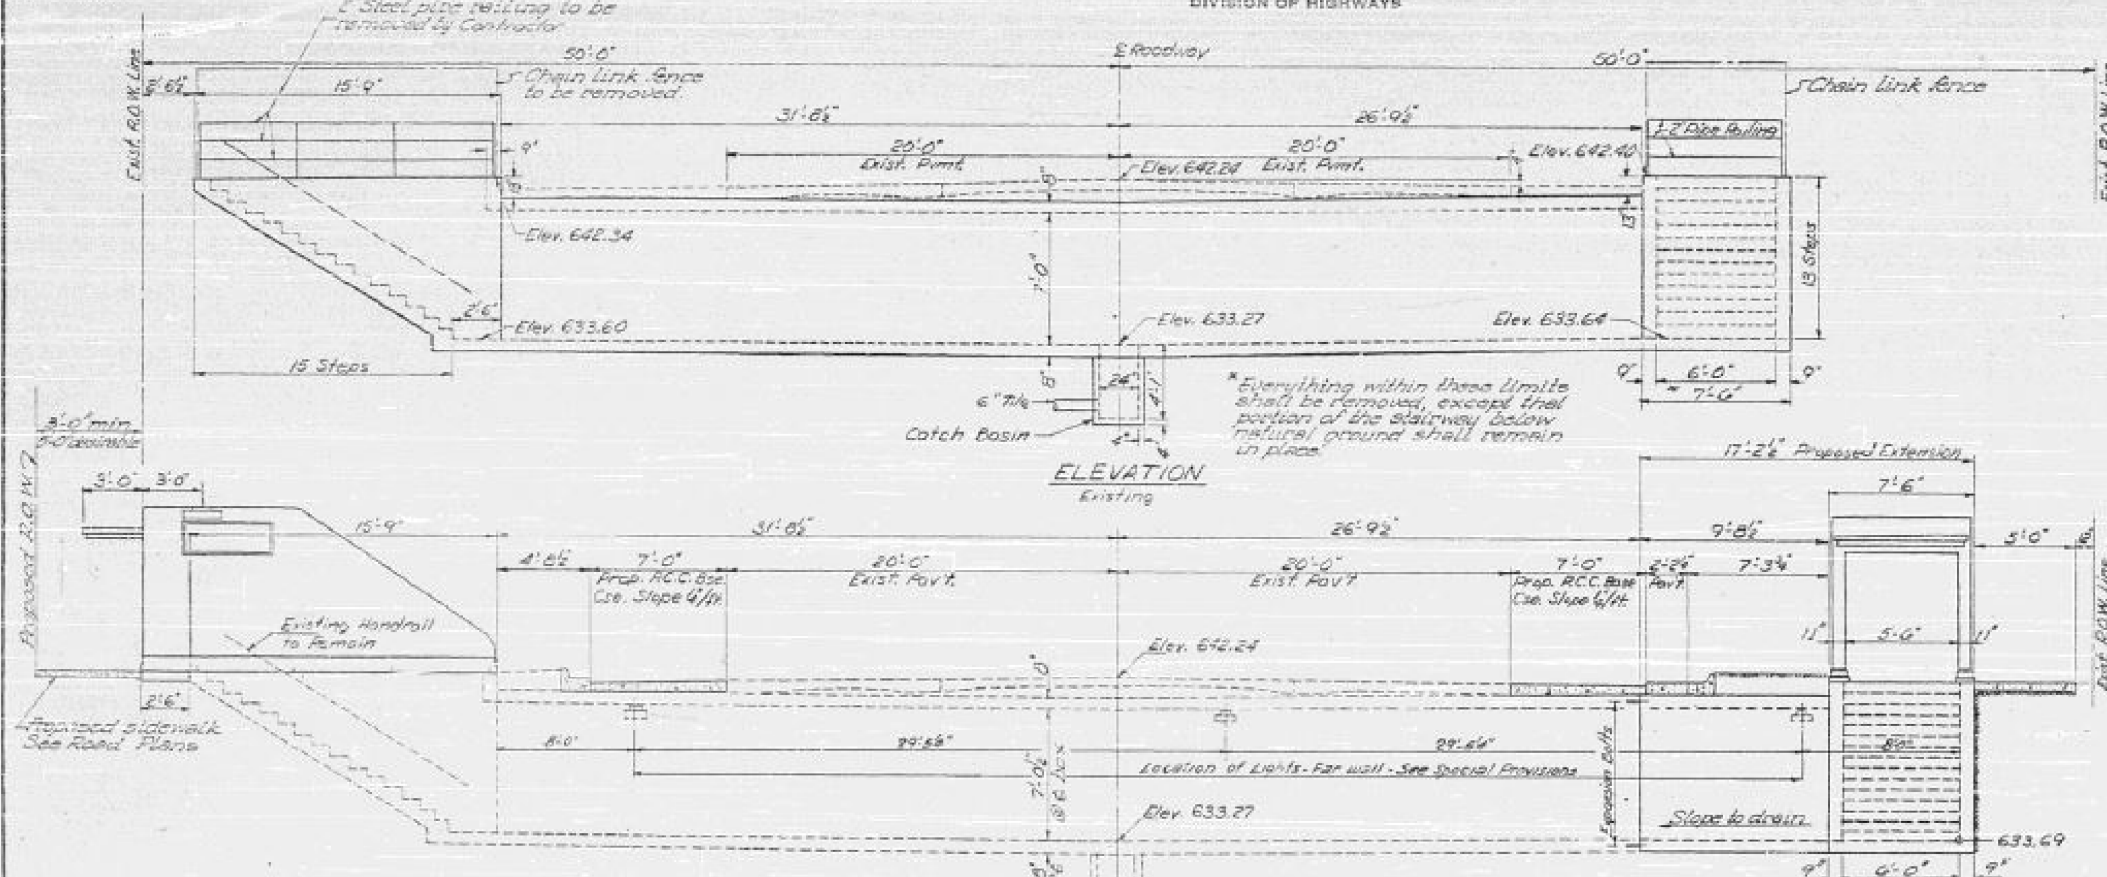 DIVISION OF HIGHWAYS
2" Steel pipe railing to be
removed by Contractor
50'-0"
℄ Roadway
50'-0"
Exist. R.O.W. Line
2'-6½"
15'-9"
Chain link fence
to be removed.
Chain link fence
31'-8½"
26'-9½"
2" Pipe Railing
9"
20'-0"
Exist. Pvmt.
20'-0"
Exist. Pvmt.
Elev. 642.24
Elev. 642.40
Elev. 642.34
13"
13 Steps
7'-0"
2'-6"
Elev. 633.60
Elev. 633.27
Elev. 633.64
15 Steps
8"
24"
4'-1"
6" Tile
Catch Basin
9"
6'-0"
9"
* 7'-6"
* Everything within these limits
shall be removed, except that
portion of the stairway below
natural ground shall remain
in place.
ELEVATION
Existing
3'-0" min.
5'-0" desirable
Proposed R.O.W.
17'-2½" Proposed Extension
7'-6"
3'-0"
3'-0"
15'-9"
31'-8½"
26'-9½"
9'-8½"
5'-0"
4'-8½"
7'-0"
Prop. P.C.C. Bse.
Cse. Slope ¼"/ft.
20'-0"
Exist. Pav't.
20'-0"
Exist. Pav't
7'-0"
Prop. P.C.C. Base
Cse. Slope ¼"/ft.
Pav't.
7'-3¾"
Exist. R.O.W. Line
Existing Handrail
to Remain
11"
5'-6"
11"
Elev. 642.24
2'-6"
Proposed sidewalk
See Road Plans
8'-0"
29'-5¼"
29'-5¼"
8'-0"
Location of Lights - Far wall - See Special Provisions
7'-0½"
@ ℄ box
Expansion Bolts
Elev. 633.27
Slope to drain
633.69
9"
6'-0"
9"